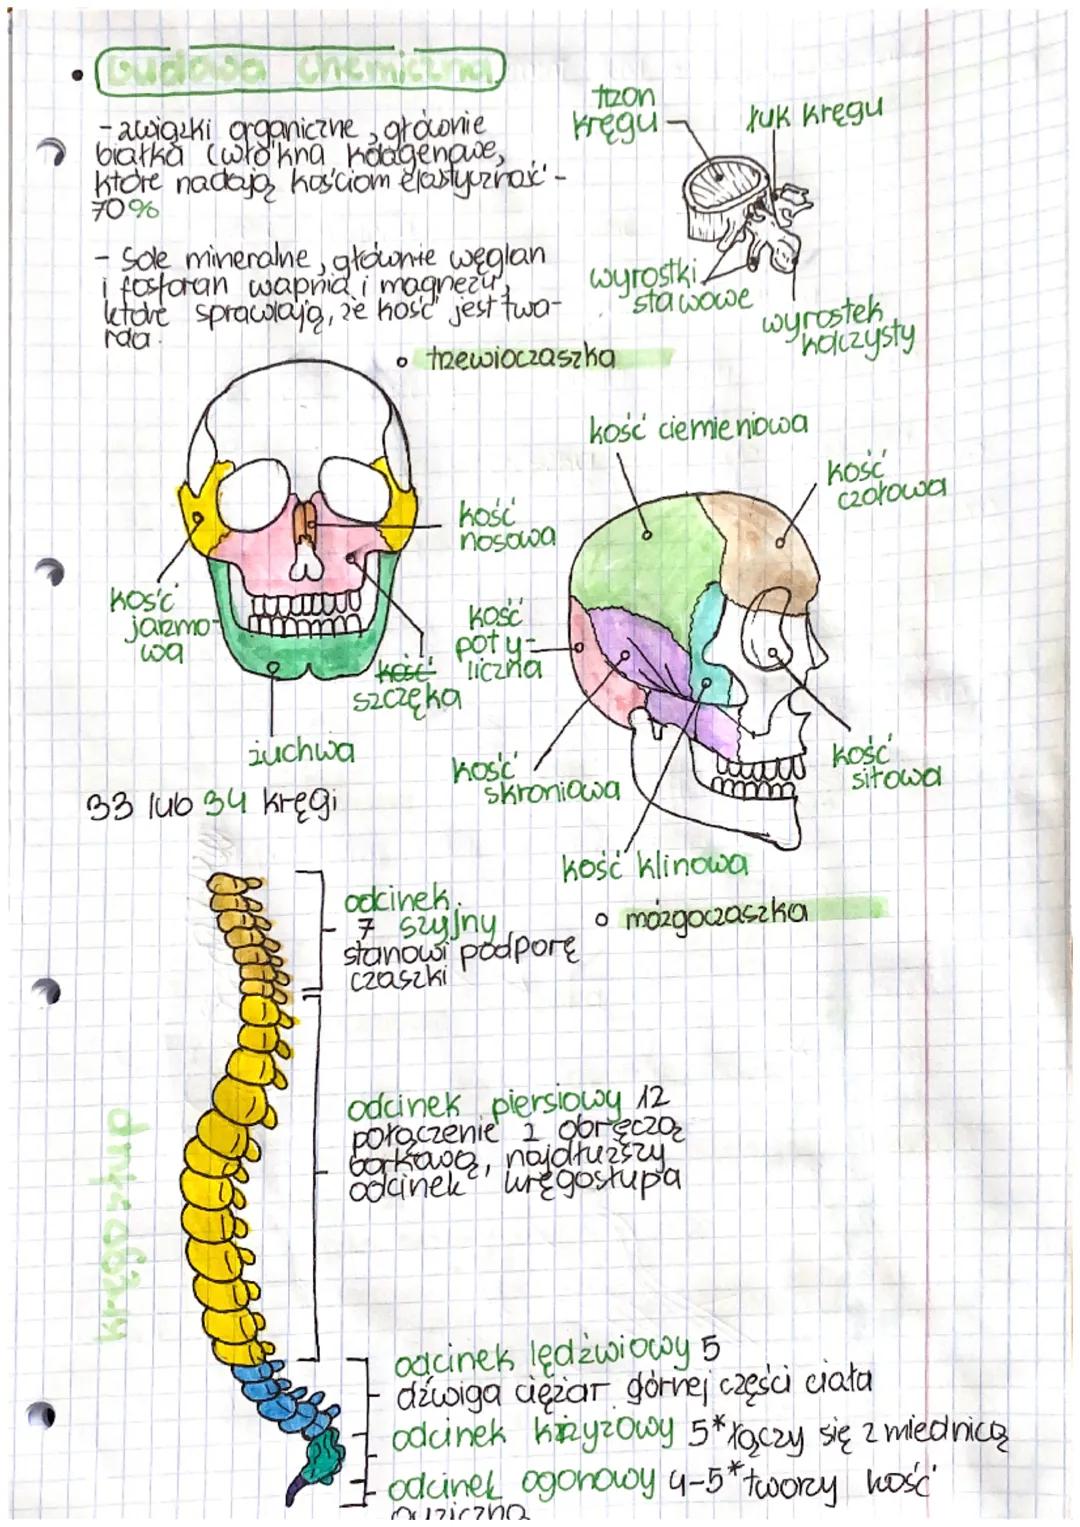 budowa chemiczna
- związki organiczne, głównie
białka (włókna kolagenowe,
które nadają kościom elastyczność -
70%
- Sole mineralne, głównie węglan
i fosforan wapnia i magnezu,
które sprawiają, że kość jest twa-
rda.
trzon
kręgu
łuk kręgu
wyrostki
stawowe
wyrostek
kolczysty
trzewioczaszka
kość
nosowa
kość
jarzmo-
wa
kość
szczęka
żuchwa
kość ciemieniowa
kość
czołowa
kość
poty-
liczna
kość
skroniowa
kość klinowa
kość
sitowa
mózgoczaszka
33 lub 34 kręgi
kręgosłup
odcinek
7 szyjny
stanowi podporę
czaszki
odcinek piersiowy 12
połączenie z obręczą
barkową, najdłuższy
odcinek kręgosłupa
odcinek lędźwiowy 5
dźwiga ciężar górnej części ciała
odcinek krzyżowy 5* łączy się z miednicą
odcinek ogonowy 4-5* tworzy kość
guziczną